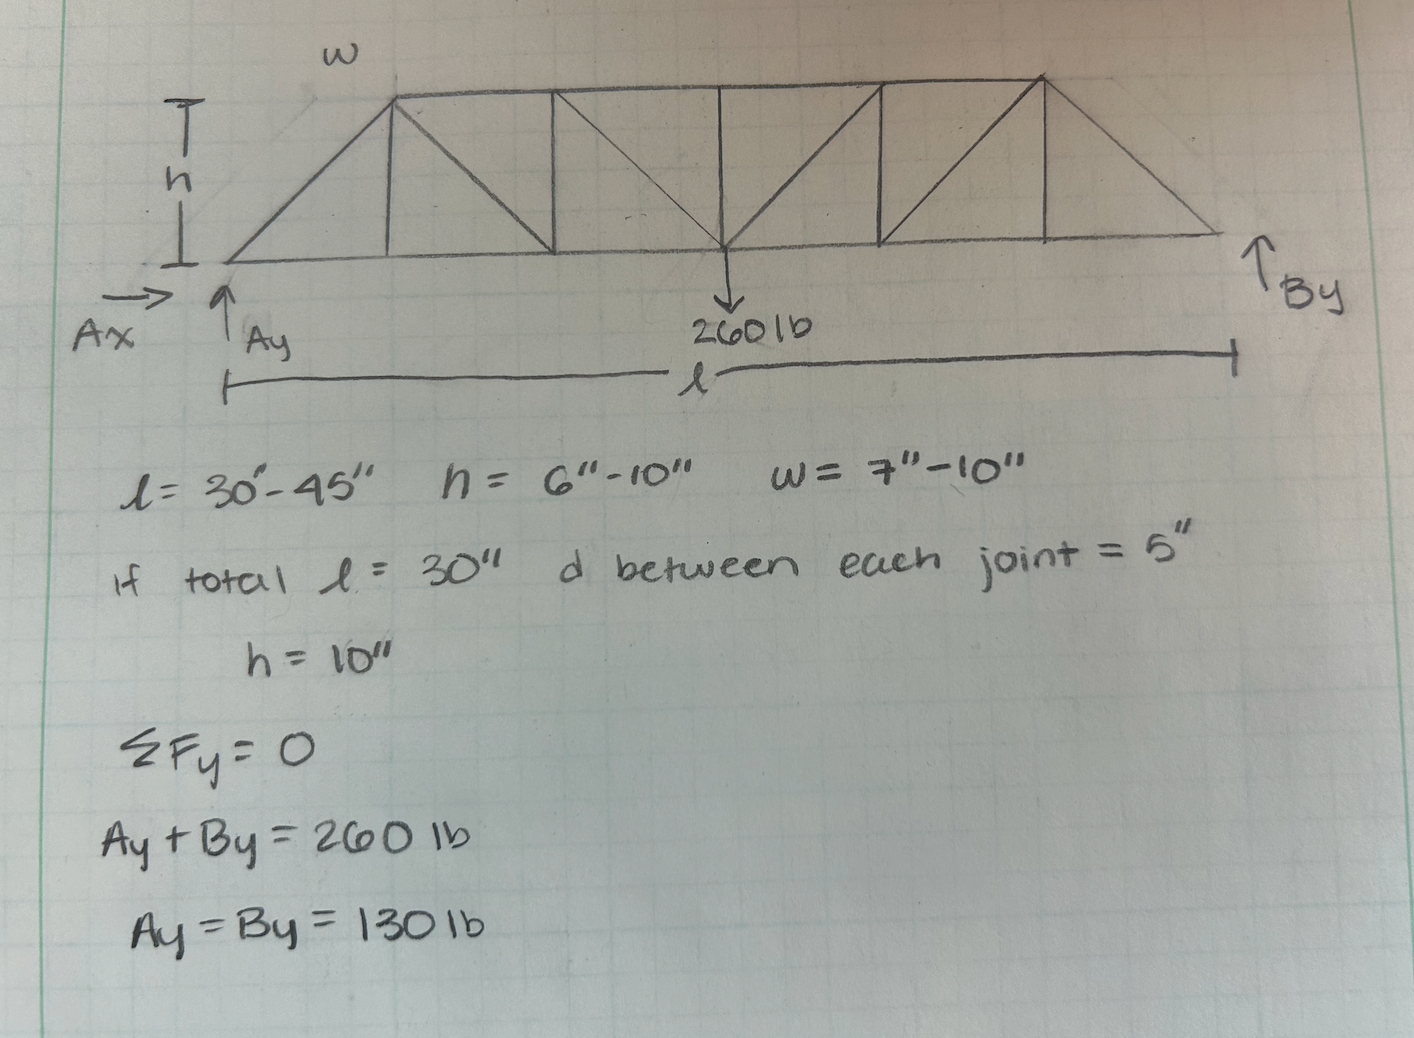 w
h
Ax
Ay
260 lb
By
l
l = 30"-45" h = 6"-10" w = 7"-10"
If total l = 30" d between each joint = 5"
h = 10"
ΣFy = 0
Ay + By = 260 lb
Ay = By = 130 lb